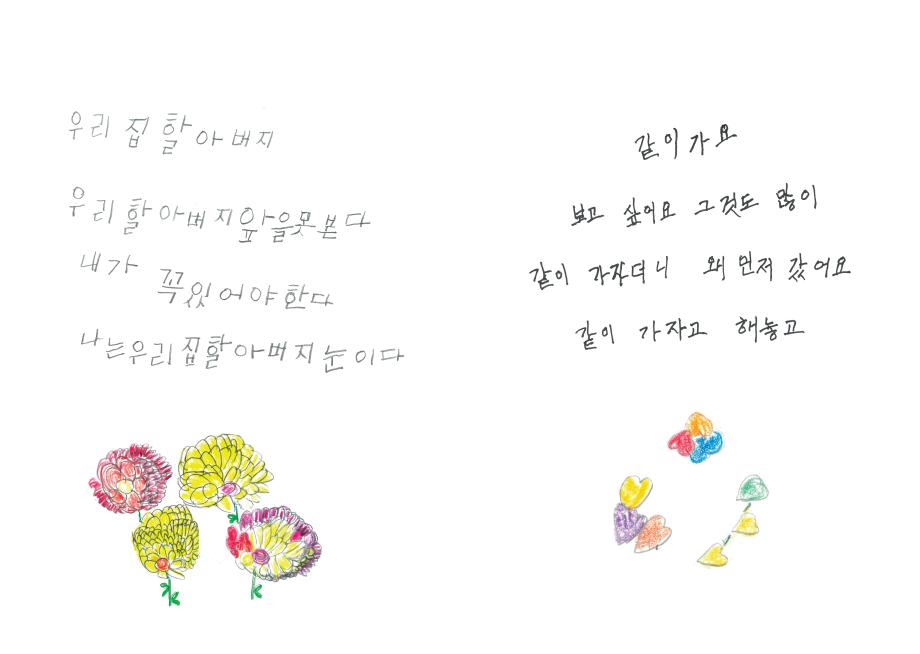 우리 집 할아버지
우리 할아버지 앞을 못 본다
내가 꼭 있어야 한다
나는 우리 집 할아버지 눈이다
같이 가요
보고 싶어요 그것도 많이
같이 가자더니 왜 먼저 갔어요
같이 가자고 해놓고